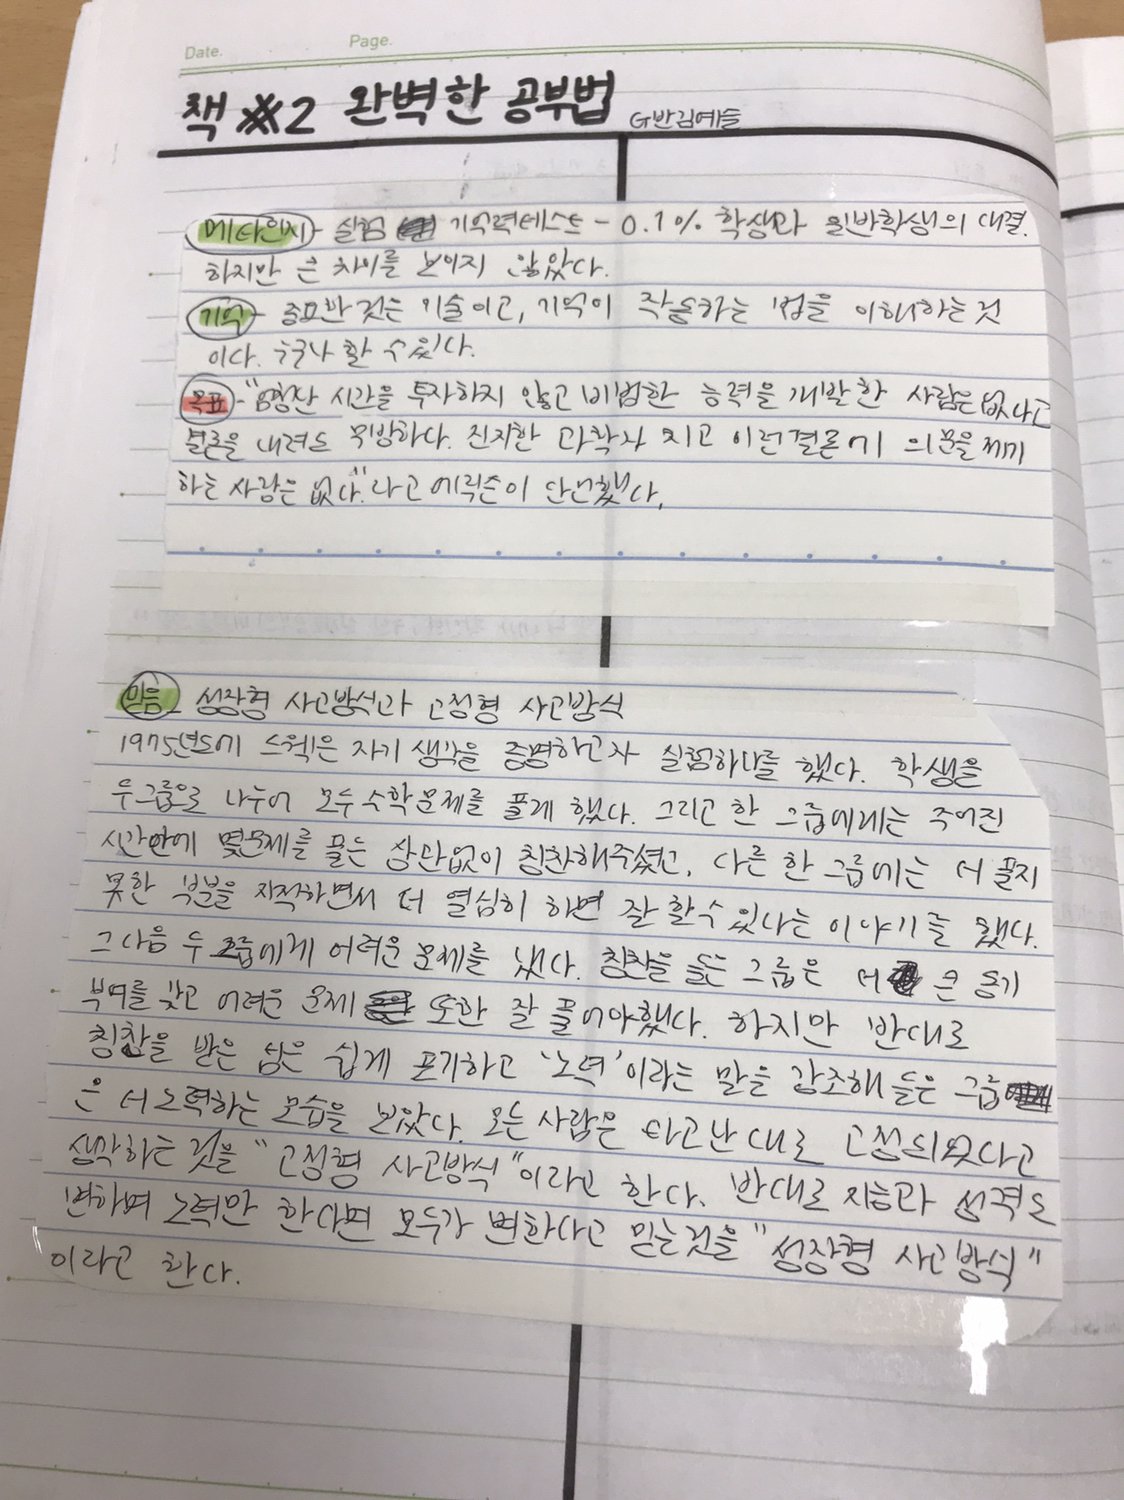 Date.
Page.
책 #2 완벽한 공부법 G반김예들
메타인지 - 실험 기억력테스트 - 0.1% 학생과 일반학생의 대결.
하지만 큰 차이를 보이지 않았다.
기억 - 중요한 것은 기술이고, 기억이 작용하는 법을 이해하는 것
이다. 누구나 할 수 있다.
목표 - "엄청난 시간을 투자하지 않고 비범한 능력을 개발한 사람은 없다고
결론을 내려도 무방하다. 진지한 과학자 치고 이런결론에 의문을 제기
하는 사람은 없다." 라고 에릭슨이 단언했다.
믿음 - 성장형 사고방식과 고정형 사고방식
1975년도에 드웩은 자기 생각을 증명하고자 실험하나를 했다. 학생을
두그룹으로 나누어 모두 수학문제를 풀게 했다. 그리고 한 그룹에게는 주어진
시간안에 몇문제를 풀든 상관없이 칭찬해주셨고, 다른 한 그룹에는 더 풀지
못한 부분을 지적하면서 더 열심히 하면 잘 할수 있다는 이야기를 했다.
그 다음 두 그룹에게 어려운 문제를 냈다. 칭찬을 듣는 그룹은 더 큰 동기
부여를 갖고 어려운 문제 또한 잘 풀어야했다. 하지만 반대로
칭찬을 받은 쉽게 포기하고 '노력'이라는 말을 강조해 들은 그룹
은 더 노력하는 모습을 보았다. 모든 사람은 타고난 대로 고정되었다고
생각하는 것을 "고정형 사고방식"이라고 한다. 반대로 지능과 성격도
변하며 노력만 한다면 모두가 변한다고 믿는것을 "성장형 사고방식"
이라고 한다.